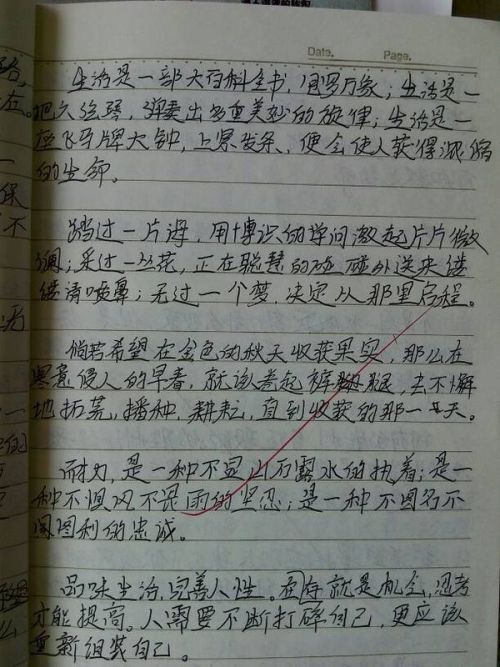 Date. Page.
生活是一部大百科全书，包罗万象；生活是一
把六弦琴，弹奏出多重美妙的旋律；生活是一
座飞马牌大钟，上紧发条，便会使人获得浓缩
的生命。
踏过一片海，用博识的学问激起片片微
澜；采过一丛花，正在聪慧的碰碰外送来缕
缕清喷鼻；无过一个梦，决定从那里启程。
倘若希望在金色的秋天收获果实，那么在
寒意侵人的早春，就该卷起裤腿，去不懈
地拓荒，播种，耕耘，直到收获的那一天。
耐力，是一种不显山不露水的执着；是一
种不惧风不畏雨的坚忍；是一种不图名不
图利的忠诚。
品味生活，完善人性。存在就是机会，思考
才能提高。人需要不断打碎自己，更应该
重新组装自己。